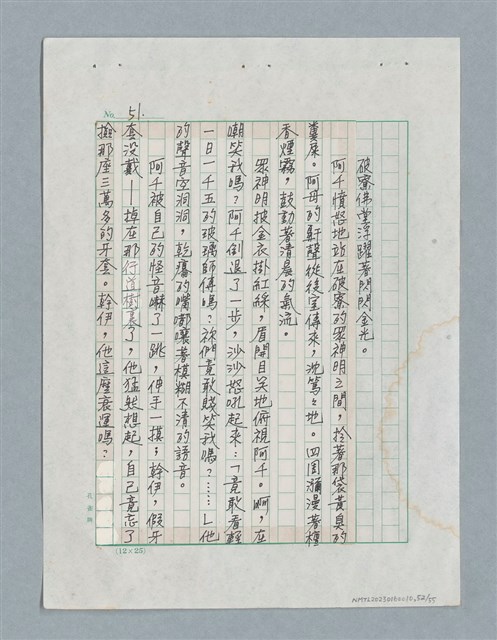 No. 51.
破寮佛堂浮躍著閃閃金光。
阿千憤怒地站在破寮的眾神明之間,拎著那袋黃臭的
糞屎。阿母的鼾聲從後室傳來,沈篤々地。四周瀰漫著檀
香煙霧,鼓動著清晨的氣流。
眾神明披金衣掛紅綵,眉開目笑地俯視阿千。啊,在
嘲笑我嗎?阿千倒退了一步,沙沙怒吼起來:「竟敢看輕
一日一千五的玻璃師傅嗎?祢們竟敢賤笑我嗎?……」他
的聲音空洞洞,乾癟的嘴嘟囔著模糊不清的語音。
阿千被自己的怪音嚇了一跳,伸手一摸;幹伊,假牙
套沒戴——掉在那行道樹裏了,他猛然想起,自己竟忘了
撿那座三萬多的牙套。幹伊,他這麼衰運嗎?
(12×25)